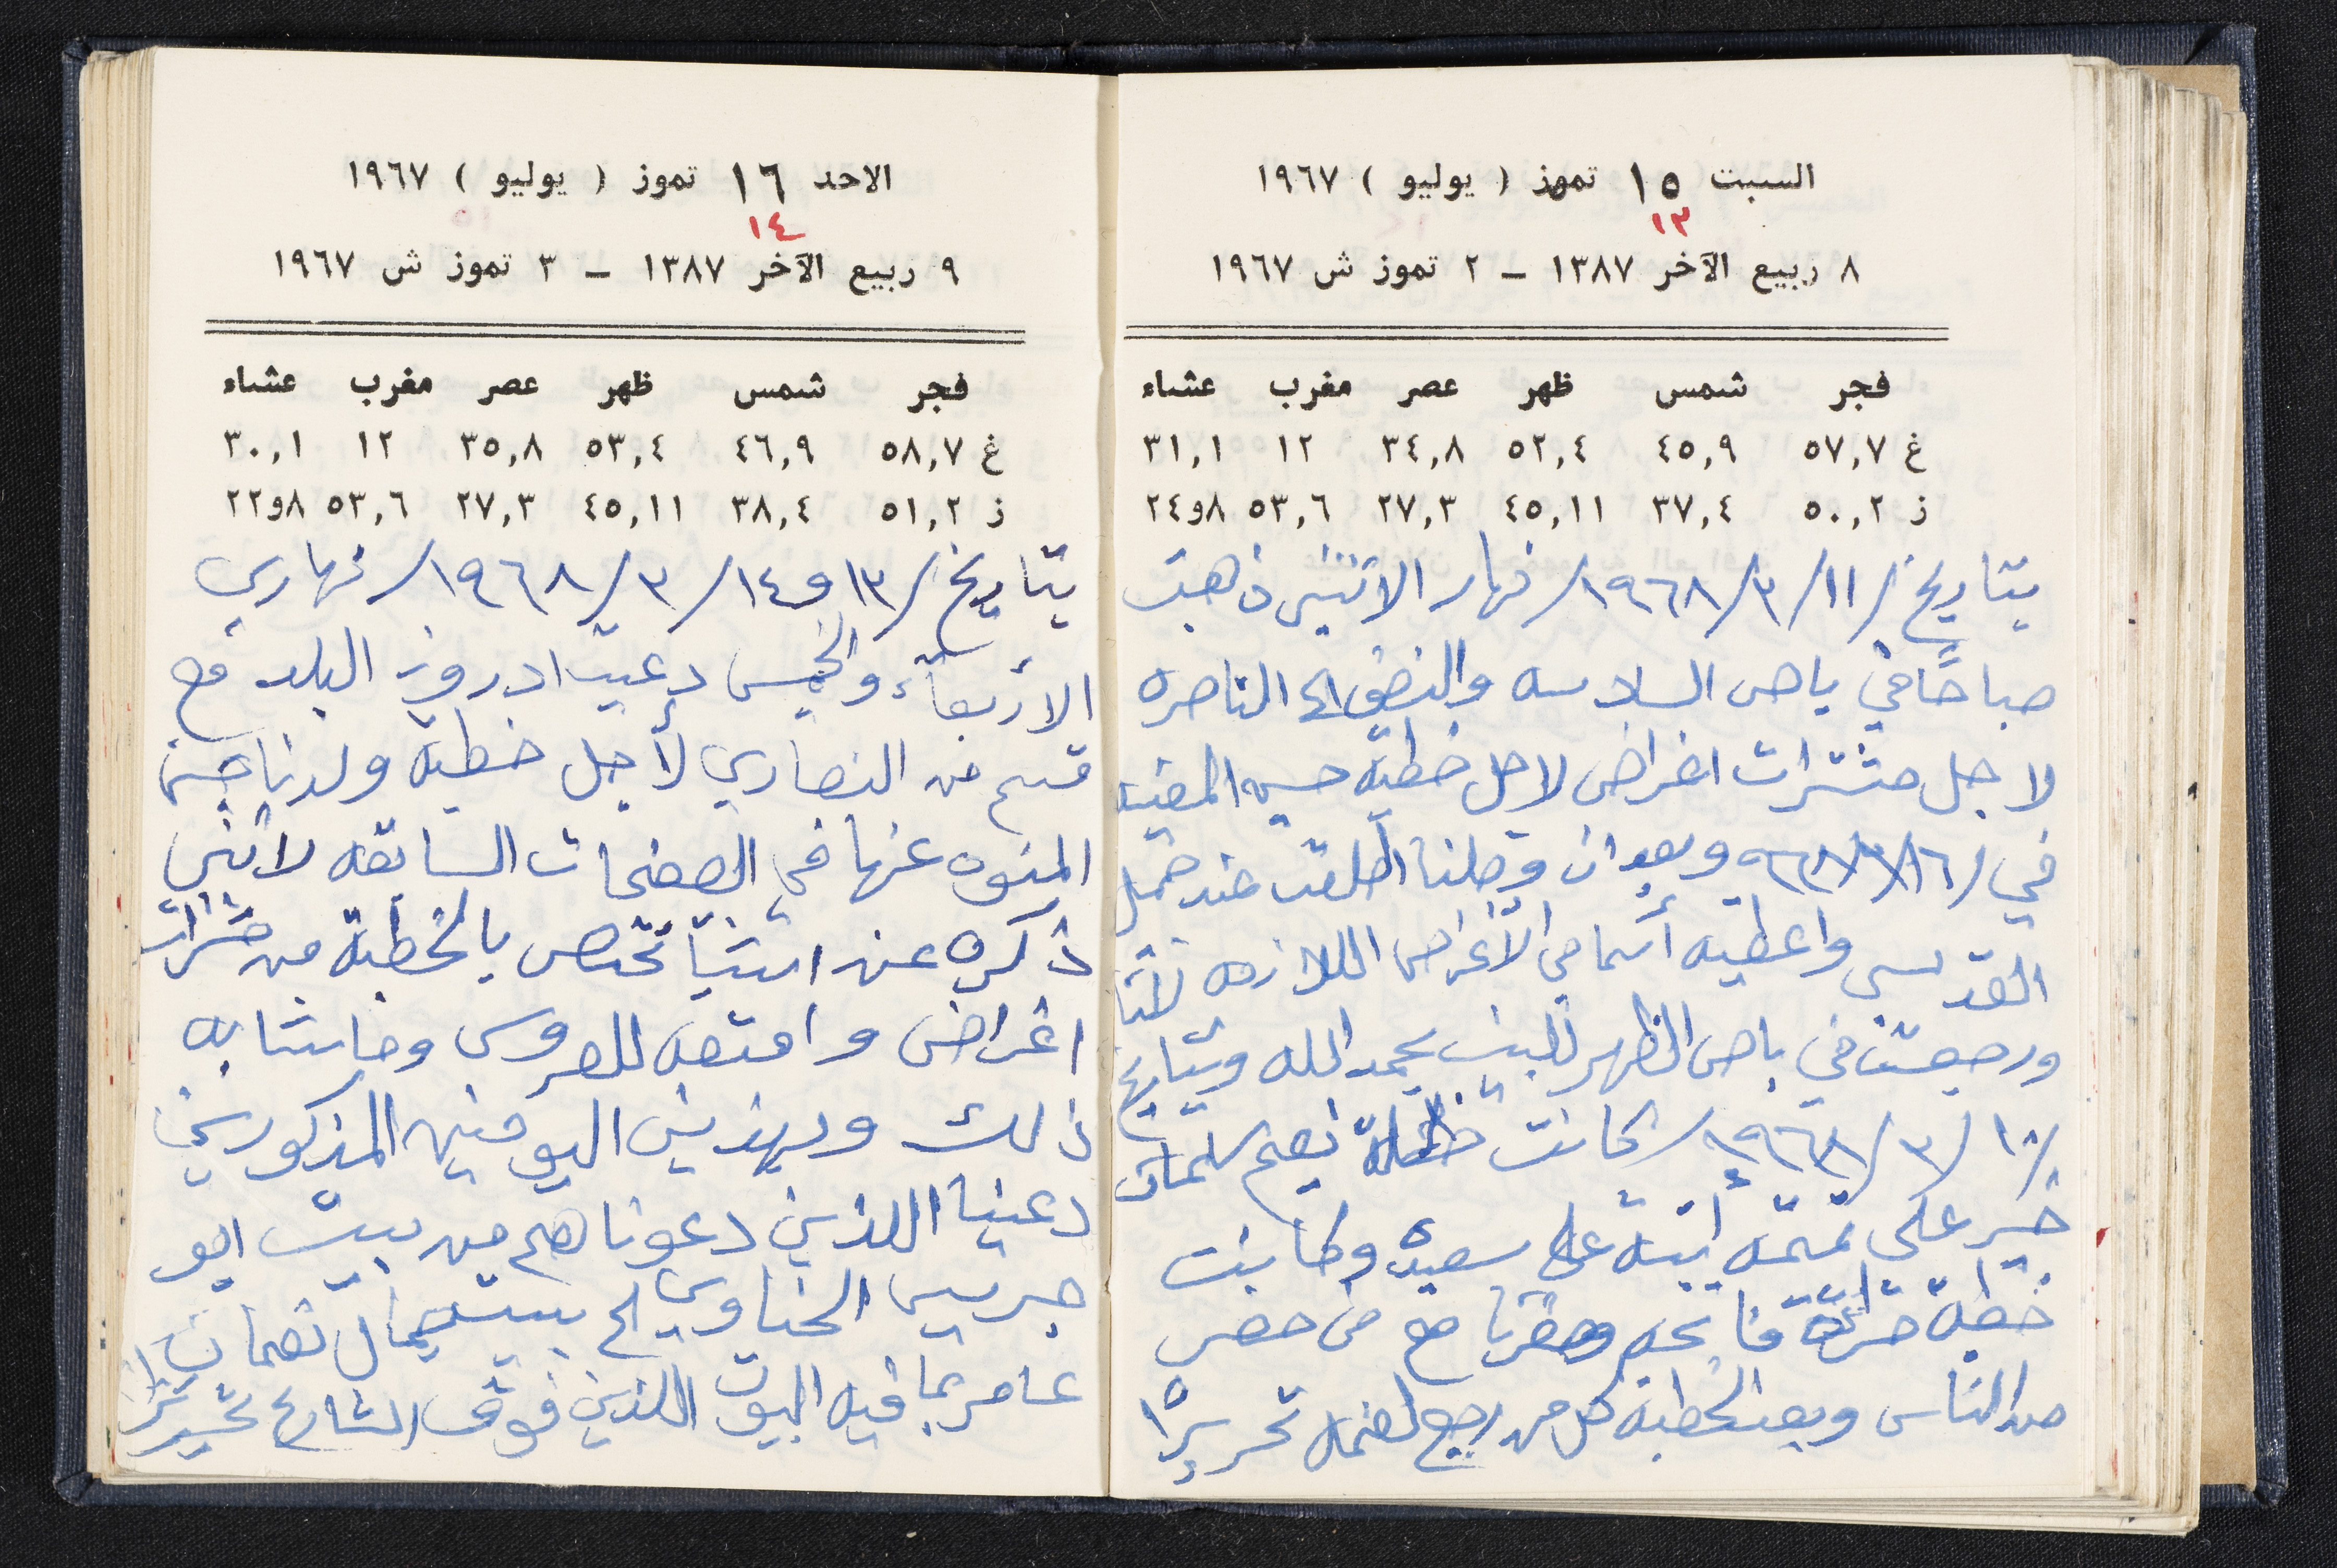 السبت ١٥ تموز ( يوليو ) ١٩٦٧
١٣
٨ ربيع الآخر ١٣٨٧ – ٢ تموز ش ١٩٦٧
فجر شمس ظهر عصر مغرب عشاء
غ ٥٧,٧ ٤٥,٩ ٥٢,٤ ٣٤,٨ ١٢ ٣١,١
ز ٥٠,٢ ٣٧,٤ ٤٥,١١ ٢٧,٣ ٥٣,٦ ٨و٢٤
بتاريخ /١١/٣/١٩٦٨/ نهار الاثنين ذهبت
صباحًا في باص السادسه والنصف الى الناصره
لاجل مشترات اغراض لاجل خطبة حسين
في وبعد ان وصلنا
القدسي واعطيه أسامي الأغراض اللازمه لنا
ورجعت في باص الظهر للبيت بحمد الله وبتاريخ
/١٠/٣/١٩٦٨/ كانت خطبة نعيم سلمان
خير على ابنة علي سعيد وكانت
خطبة قرائة فاتحه وحضرنا مع من حضر
من الناس وبعد الخطبة كل من رجع لعمله تحريرًا
الاحد ١٦ تموز ( يوليو ) ١٩٦٧
١٤
٩ ربيع الآخر ١٣٨٧ – ٣ تموز ش ١٩٦٧
فجر شمس ظهر عصر مغرب عشاء
غ ٥٨,٧ ٤٦,٩ ٥٣,٤ ٣٥,٨ ١٢ ٣٠,١
ز ٥١,٢ ٣٨,٤ ٤٥,١١ ٢٧,٣ ٥٣,٦ ٨و٢٢
بتاريخ /١٣ و١٤/٣/١٩٦٨/ نهاري
الاربعاء والخميس دعيت ادروز البلد مع
قسم من النصاري لأجل خطبة ولدنا حسين
المنوه عنها في الصفحات السابقه لانني
ذكره عن اشيا تختص بالخطبة من
اغراض وامتعه للعروس وماشابه
ذلك وبهذين اليومين المذكورين
دعينا اللذين دعوناهم من بيت ابو
جريس الخناوي لح بيت جمال نعمان
عامر بما فيه البيوت اللذين فوق الشارع تحريرًا